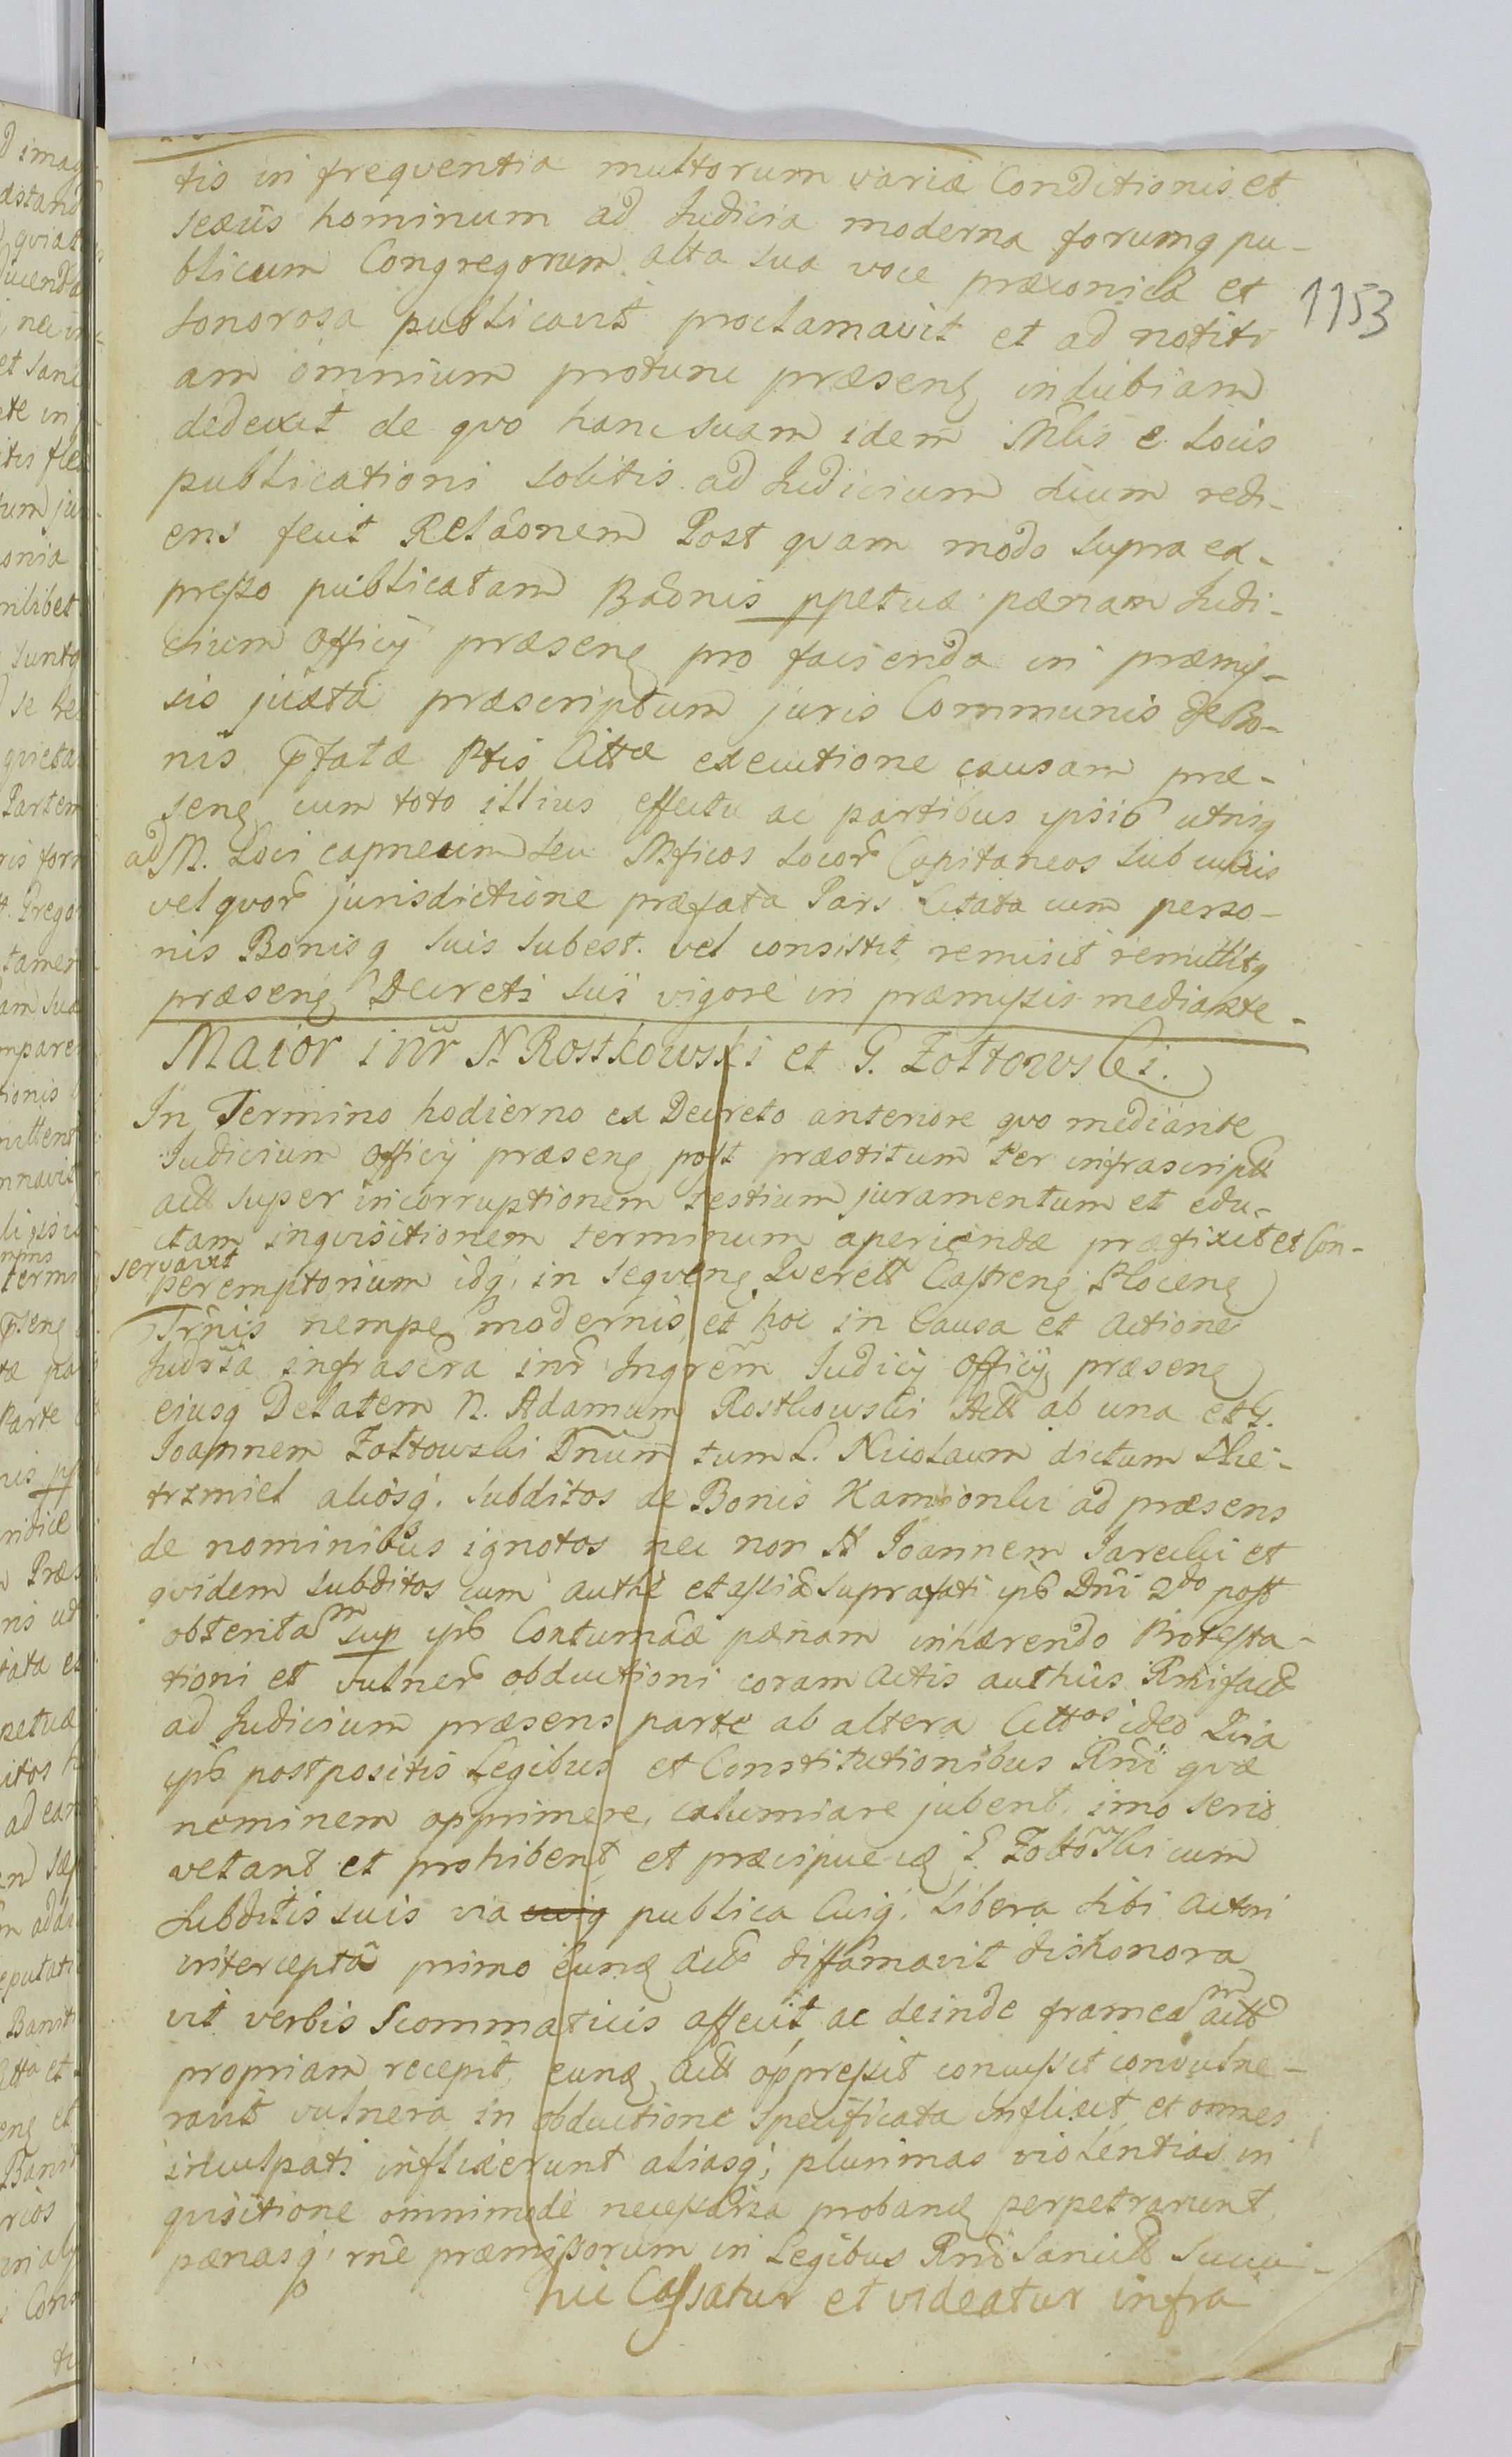 tis in frequentia multorum variæ Conditionis et
sexûs hominum ad Judicia moderna forumq pu-
blicum Congregorum alta sua voce præconica et
sonorosa publicavit proclamavit et ad notiti
am omnium protunc præsenę indubiam
deduxit de qvo hanc suam idem Mlis e locis
publicationi solitis ad Judicium dium redi-
ens fecit Relãonem Post qvam modo supra ex-
presso publicatam Bãonis ppetuæ pænam Judi-
cium Officij præsenę pro facienda in præmis-
sis juxta præscriptum juris Communis de Bo-
nis pfatæ Ptis Cittæ executione causam præ-
senę cum toto illius effectu ac partibus ipsis utrisq
ad M. Loci capneum seu Mficos Locor Capitaneos sub cuius
vel qvor jurisdictione præfata Pars Citata cum perso-
nis Bonisq suis subest vel consistit remisit remittitq
præsenę Decreti sui vigore in præmissis mediante-
Maior inr N Rostkowski et G. Zołtowski.
In Termino hodierno ex Decreto anteriore qvo mediante
Judicium Officij præsenę post præstitum per infrascript
act super incorruptionem testium juramentum et edu-
ctam inqvisitionem terminum aperiendæ præfixit et Con-
servavit
peremptorium idq, in seqvenę Qverell Castrenę Plocenę
Trnis nempe modernis et hoc in Causa et Actione
infrascra inr Ingrem Judicij Officij præsenę
eiusq Delatem N. Adamum Rostkowski Act ab una et G.
Joannem Zołtowski Dnum tum L. Nicolaum dictum
trzmiel aliosq. subditos de Bonis Kamionki ad præsens
de nominibus ignotos nec non N Joannem Jarecki et
qvidem subditos cum authe et assiã suprafati ipś Dni 2do post
obtentam sup ipś Contumãæ pænam inhærendo Protesta-
tioni et vulner obductioni coram Actis authûs
ad Judicium præsens parte ab altera Cittos ideo Qvia
ipś postpositis Legibus et Constitutionibus Rni qvæ
neminem opprimere, calumniare jubent, imo serio
vetant et prohibent et præcipue G. Zołtoski cum
Subditis suis via cuiq publica Cuiq. libera sibi Actori
interceptâ primo eunę act diffamavit dishonora
vit verbis Scommaticis affecit ac deinde frameam act
propriam recepit eunę act oppressit concussit convulne-
ravit vulnera in obductione specificata inflixit et omnes
inculpati inflixerunt aliasq, plurimas violentias in
qvisitione omnimode probanę perpetrarunt
pænasq, rne præmissorum in Legibus Rni
hic Cassatur et videatur infra
1153